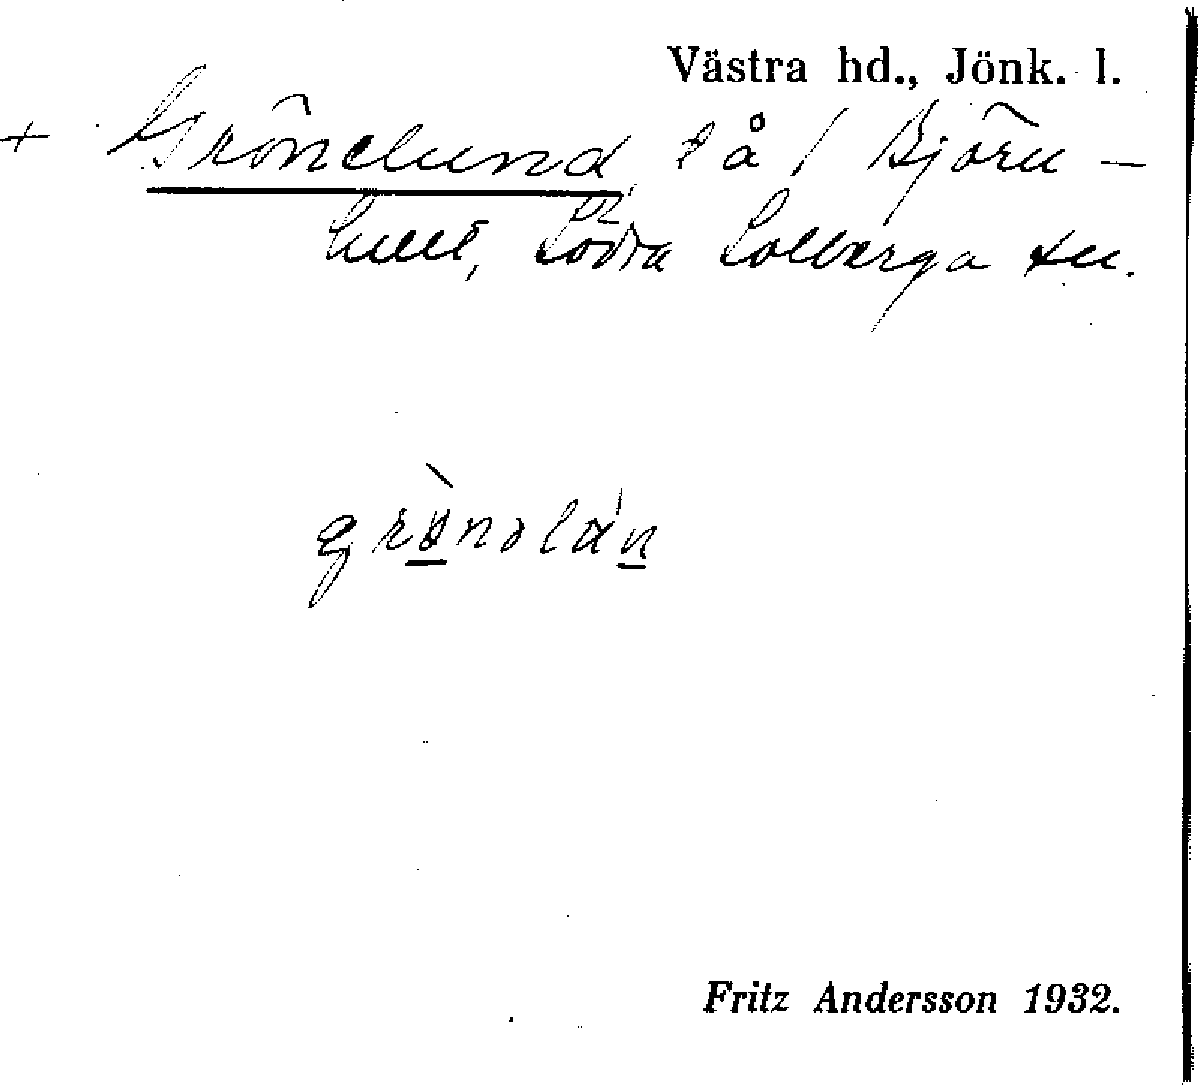 Västra hd., Jönk. l.
+ Grönelund, l å / Björn-
hult, Södra Solberga sn.
grònəlán
Fritz Andersson 1932.